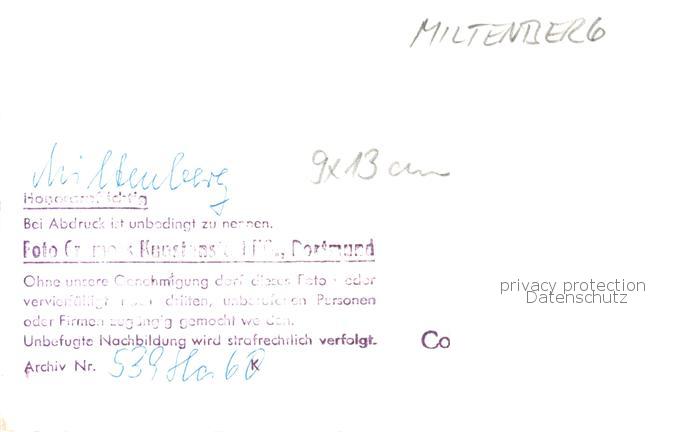 MILTENBERG
Miltenberg
9x13 cm
Honorarpflichtig
Bei Abdruck ist unbedingt zu nennen.
Foto Cramers Kunstanstalt KG., Dortmund
Ohne unsere Genehmigung darf dieses Foto weder
vervielfältigt noch dritten, unberufenen Personen
oder Firmen zugängig gemacht werden.
Unbefugte Nachbildung wird strafrechtlich verfolgt.
Co
Archiv Nr. 539 K
privacy protection
Datenschutz